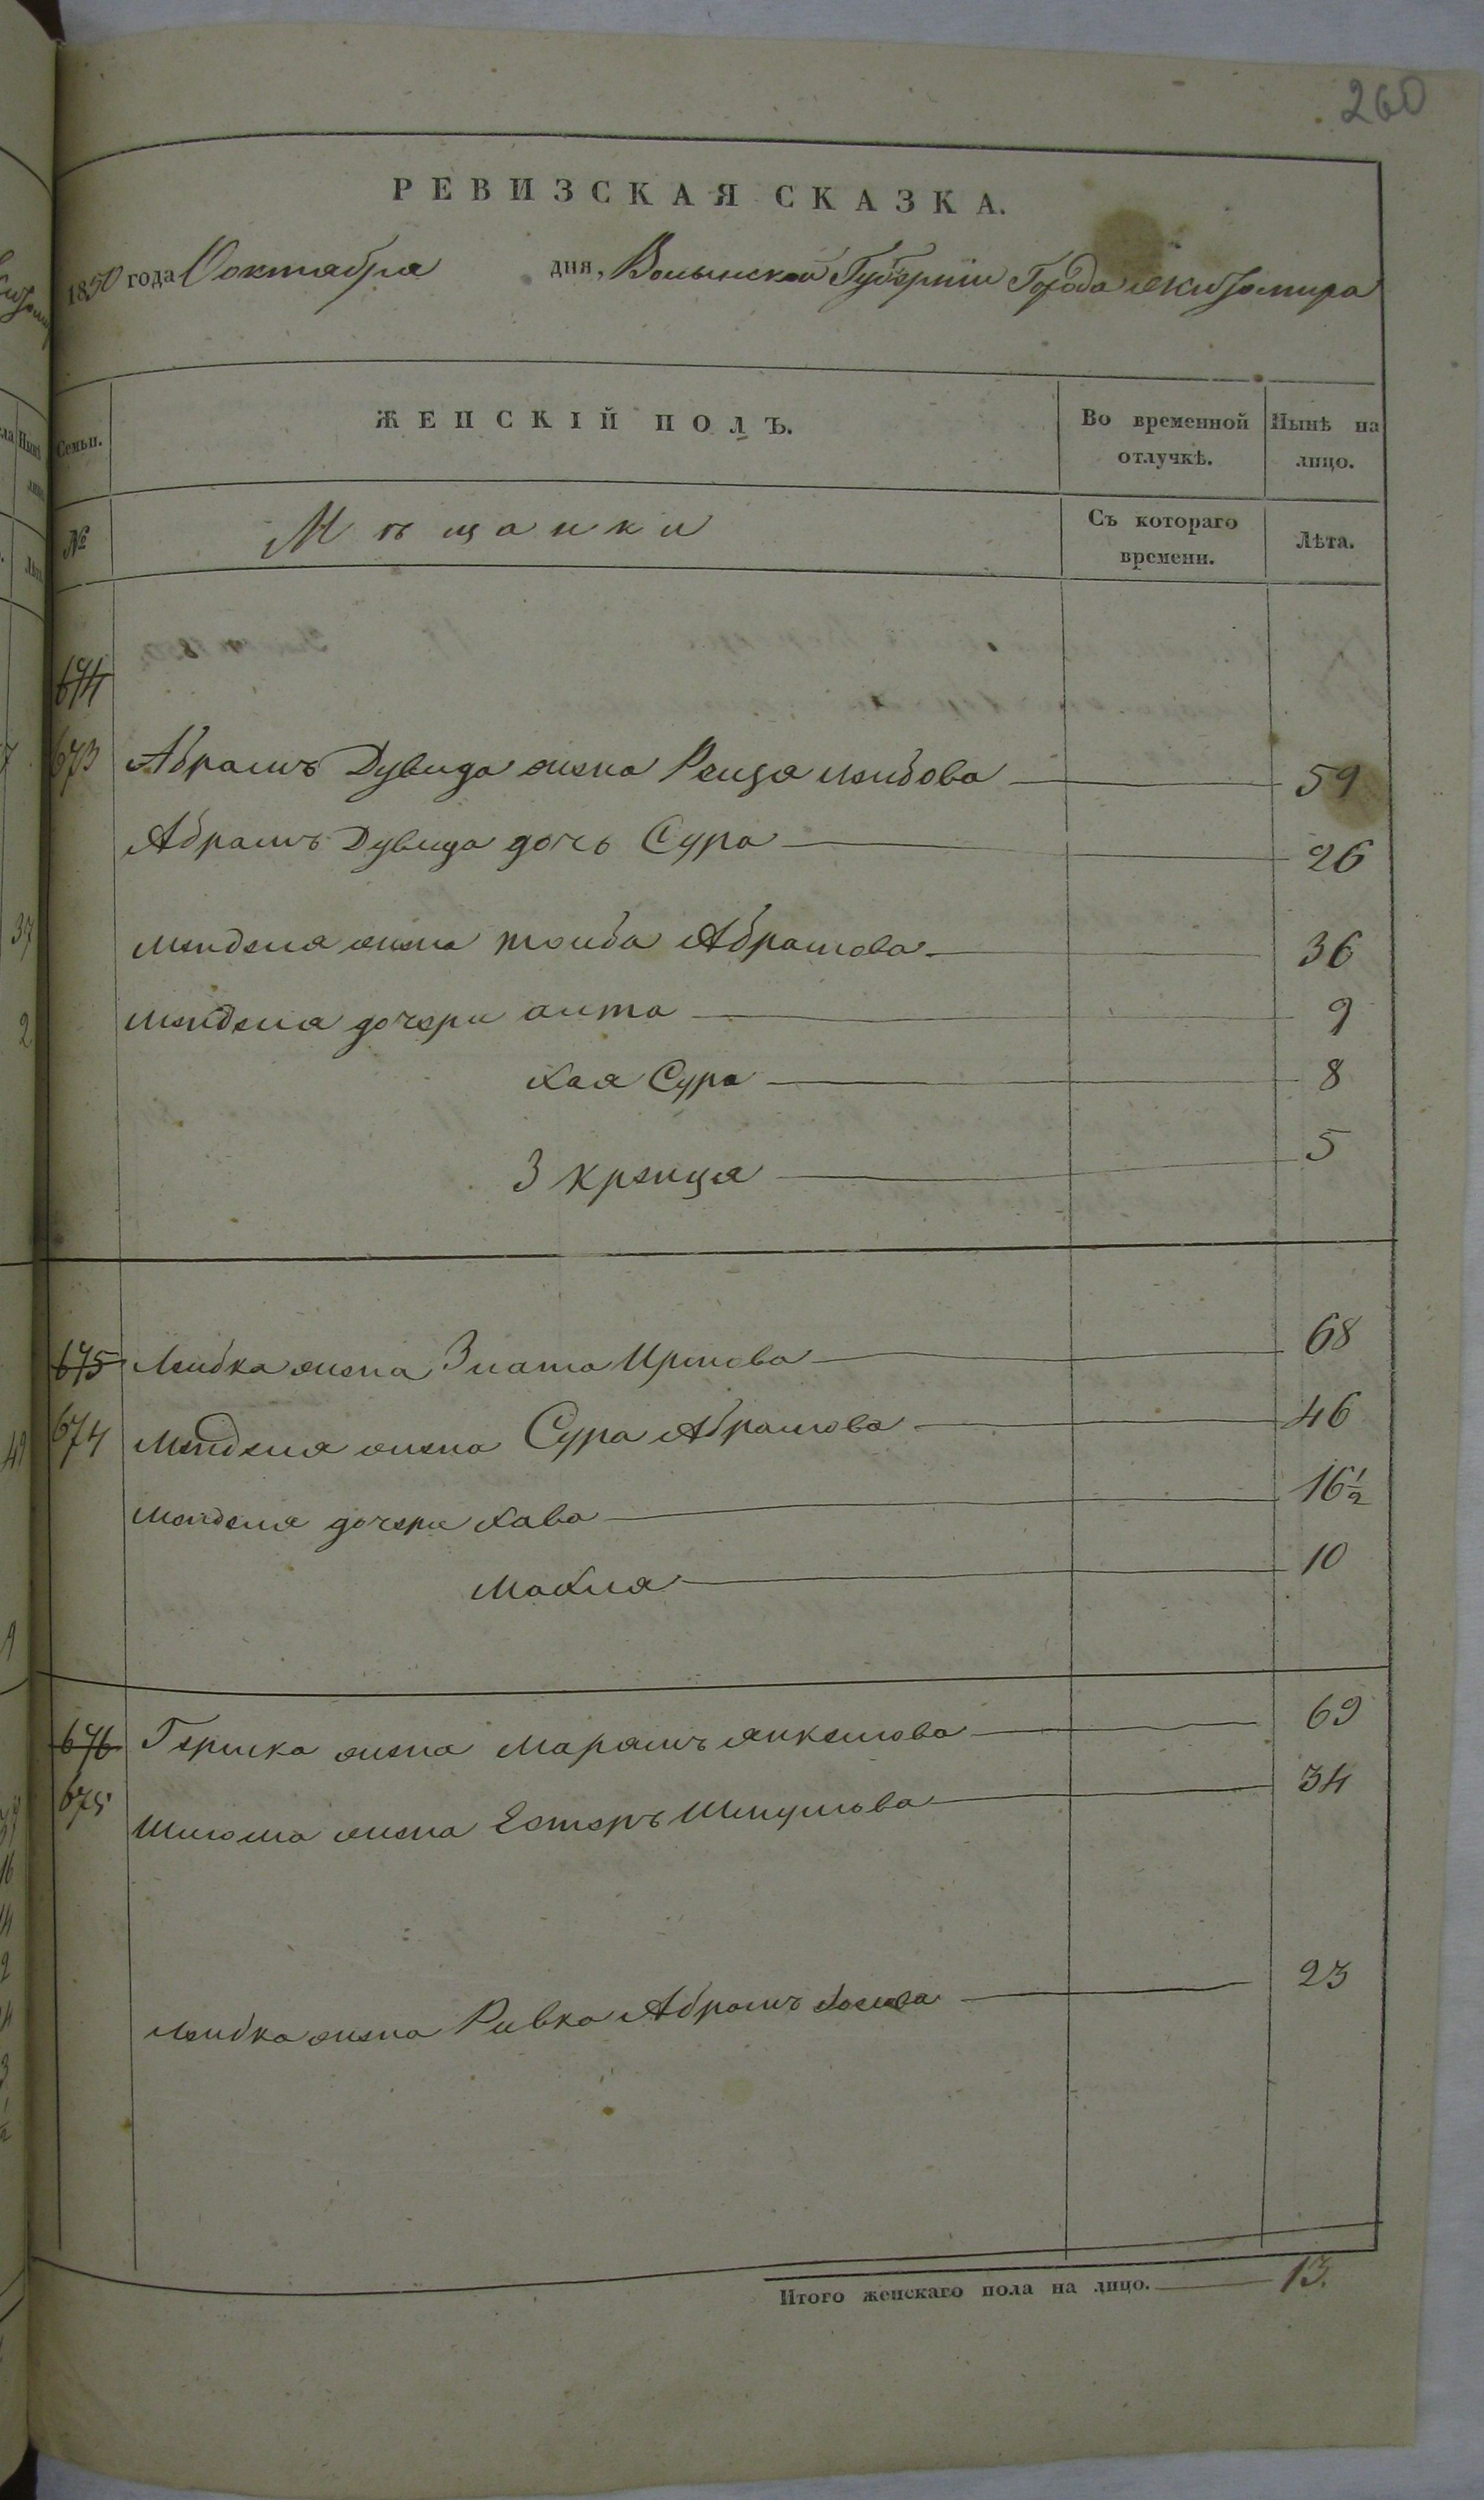 260
РЕВИЗСКАЯ СКАЗКА.
1850 года Октября дня, Волынской Губерніи Города Житомира
Семьи. ЖЕНСКІЙ ПОЛЪ. Во временной отлучкѣ. Нынѣ на лицо.
№ Мѣщанки Съ котораго времени. Лѣта.
674
673 Абрамъ Дувида жена Рейзя Лейбова 59
Абрамъ Дувида дочь Сура 26
Мендела жена Тойба Абрамова 36
Мендела дочери 9
Хая Сура 8
3 Крейця 5
675 Лейбка жена Злата Ицкова 68
674 Менделя жена Сура Абрамова 46
Менделя дочери Хава 16½
Махля 10
676 Гершка жена Марямъ Янкелова 69
675 Шлиома жена Естеръ Шмулова 34
Лейбка жена Ривка Абрамъ 23
Итого женскаго пола на лицо. 13.